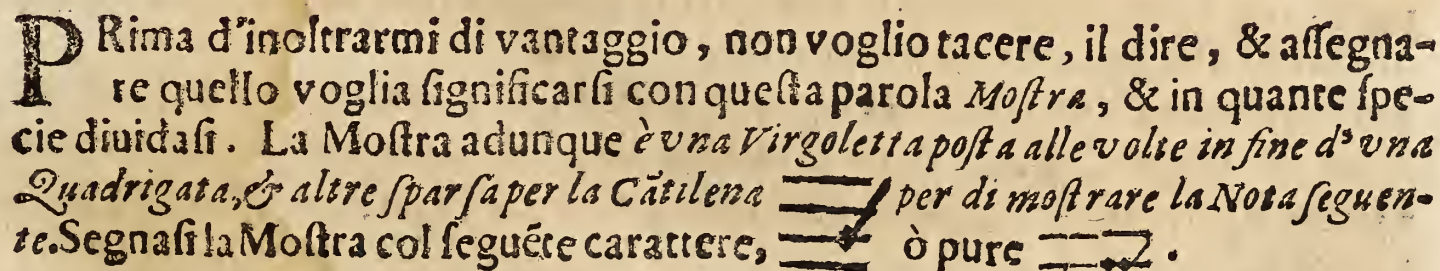 PRima d'inoltrarmi di vantaggio, non voglio tacere, il dire, & aſſegna-
re quello voglia ſignificarſi con queſta parola Moſtra, & in quante ſpe-
cie diuidaſi. La Moſtra adunque è vna Virgoletta poſta alle volte in fine d'vna
Quadrigata, & altre ſparſa per la Cãtilena per di moſtrare la Nota ſeguen-
te. Segnaſi la Moſtra col ſeguẽte carattere, ò pure .